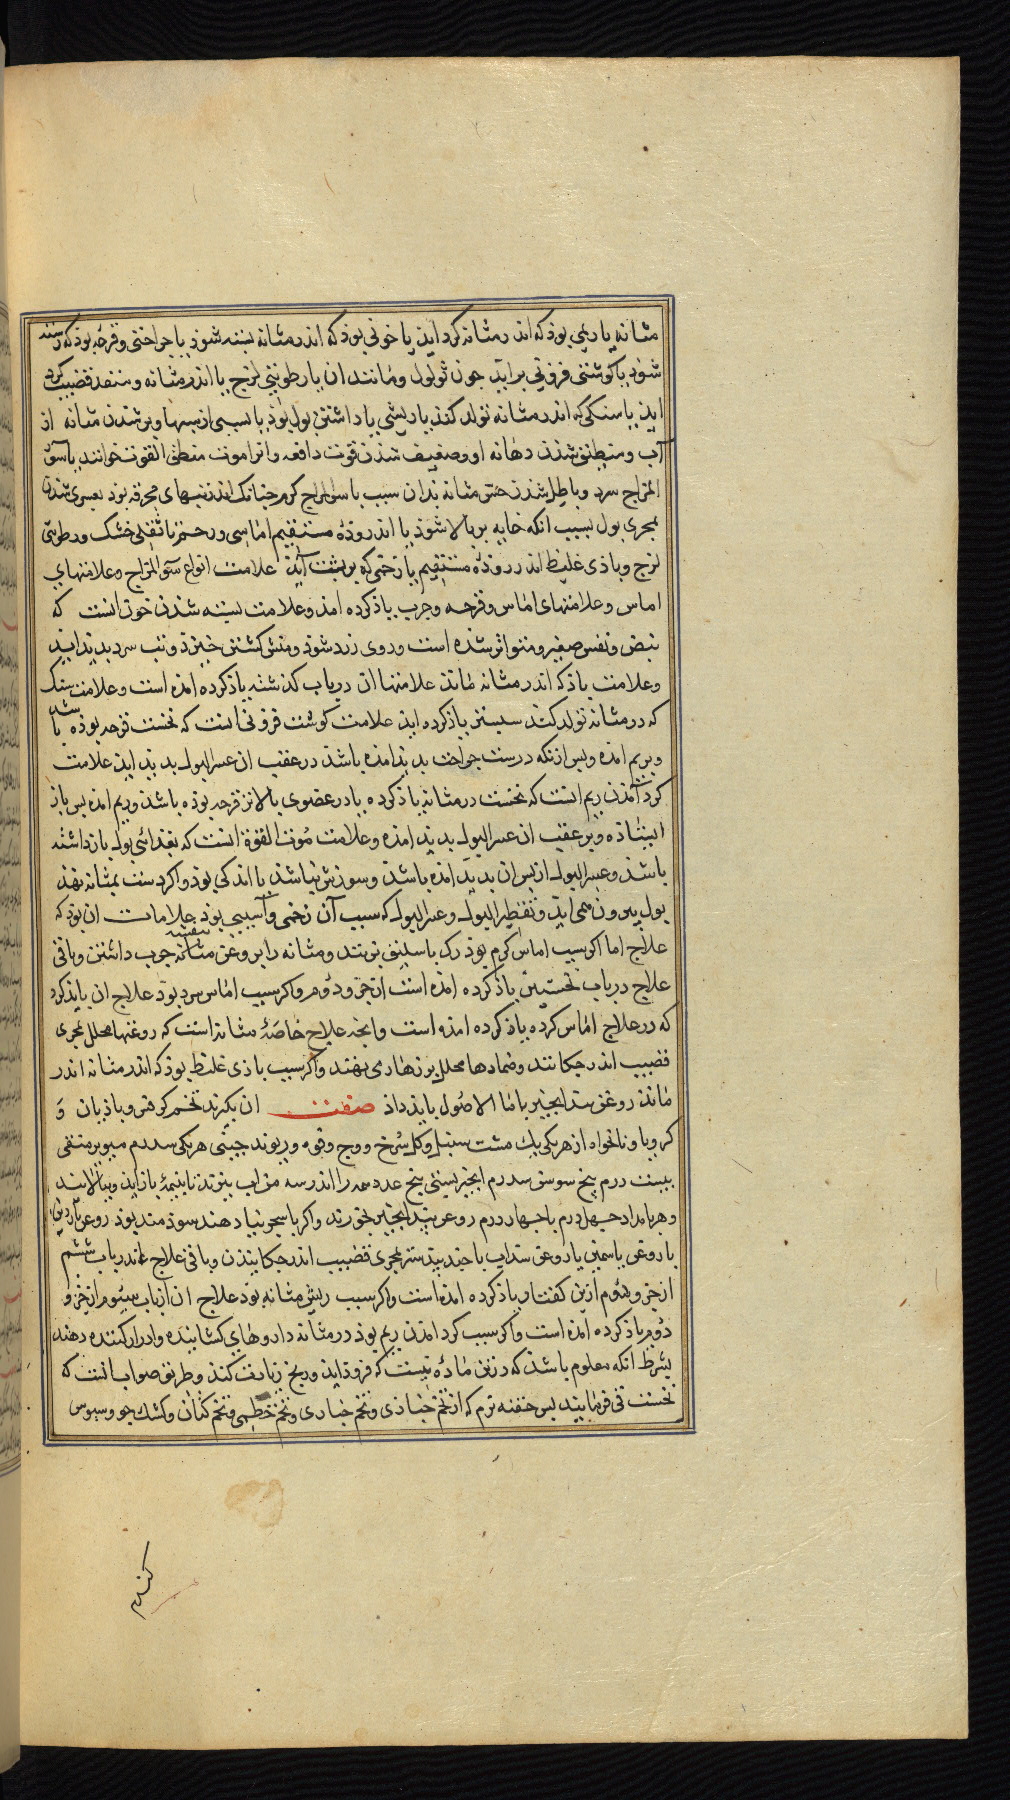 مثانه یا ریمی بوذ که اندر مثانه کرد اید یا خونی بوذ که اندر مثانه بسته شوذ یا جراحتی و قرحه بوذ که رسته
شوذ یا کوشتی فزونی براید جون ثولول و مانند ان یا رطوبتی لزج یا اندر مثانه و منفذ قضیب کرد
اید یا سنکی که اندر مثانه تولد کند یا ریشی یا داشتن بول بوذ با سببی از سببها و پر شدن مثانه از
آب و منطبق شذن دهانه او و ضعیف شذن قوت دافعه و انرا موت منطق القوت خوانند یا سو
المزاج سرد و باطل شذن حس مثانه بذان سبب یا سو المزاج کرم جنانک اندر تبهای محرقه بود
مجری بول بسبب انکه خایه بر بالا شوذ یا اندر روذهٔ مستقیم اماسی ورحم یا ثفلی خشک و رطوبتی
لزج و باذی غلیظ اندر روذهٔ مستقیم یا زخمی که بر پشت آید علامت انواع سو المزاج و علامتهای
اماس و علامتهای اماس و قرحه و جرب یاذ کرده امذ و علامت بسته شذن خون انست که
نبض و نفس صغیر و متواتر شذه است و روی زرد شوذ و منش کشتن خیزد و تب سرد بدید اید
و علامت باذ که اندر مثانه ماند علامتها ان در باب کذشته یاذ کرده امذه است و علامت سنک
که در مثانه تولد کند سپستر یاذ کرده اید علامت کوشت فزونی انست که نخست قرحه بوذه باشد یا
و ریم امذه و پس از انکه درست جراحت بدید امذه باشد در عقب ان عسر البول بدید اید علامت
کرد آمذن ریم انست که نخست در مثانه یاذ کرده یا در عضوی بالاتر قرحه بوذه باشد و ریم امذه پس باز
ایستاذه و بر عقب ان عسر البول بدید امذه و علامت موت القوة انست که بقذ اشی بول باز داشته
باشد و عسر البول از پس ان بدید امذه باشد و سوزش نباشد یا اندکی بوذ و اکر دست بمثانه نهند
بول بیرون می اید و تقطیر البول و عسر البول که سبب آن زخمی و آسیبی بوذ علامات ان بوذ که
علاج اما اکر سبب اماس کرم بوذ رک باسلیق بزنند و مثانه را بروغن بنفشه جرب داشتن و باقی
علاج در باب نخستین یاذ کرده امذه است از جزو دوم و اکر سبب اماس سرد بوذ علاج ان باید کرد
که در علاج اماس کرده یاذ کرده امذه است و انجه علاج خاصهٔ مثانه است که روغنها محلل بمجری
قضیب اندر جکانند و ضمادها محلل بر زهار می نهند و اکر سبب باذی غلیظ بوذ که اندر مثانه اندر
ماند روغن بید انجیر با ما الاصول باید داذ صفت ان بکیرند تخم کرفس و باذیان و
کرویا و نانخواه از هر یکی یک مشت سنبل و کل سرخ و وج و فوه و ریوند جینی هر یکی سه درم میویز منقی
بیست درم بیخ سوسن سه درم انجیر بستی پنج عدد همه را اندر سه من اب ببزند تا بنیمهٔ باز اید و بپالایند
و هر بامداد جهل درم با جهار درم روغن بید انجیر بخورند و اکر با سجزنیا دهند سوذ مند بوذ روغن ناردین
یا روغن یاسمین یا روغن سداب با جند بیدستر بمجری قضیب اندر جکانیدن و باقی علاج اندر باب ششم
از جزو دوم ازین کفتار یاذ کرده امذه است و اکر سبب ریش مثانه بوذ علاج ان از باب سیوم از جزو
دوم یاذ کرده امذه است و اکر سبب کرد امذن ریم بوذ در مثانه داروهای کشاینده و ادرار کننده دهند
بشرط انکه معلوم باشد که در تن مادهٔ نیست که فروذ اید و رنج زیادت کند و طریق صواب انست که
نخست قی فرمایند پس حقنه نرم که از تخم خبازی و تخم خیاری و تخم خطمی و تخم کتان و کشک جو و سبوس
کندم